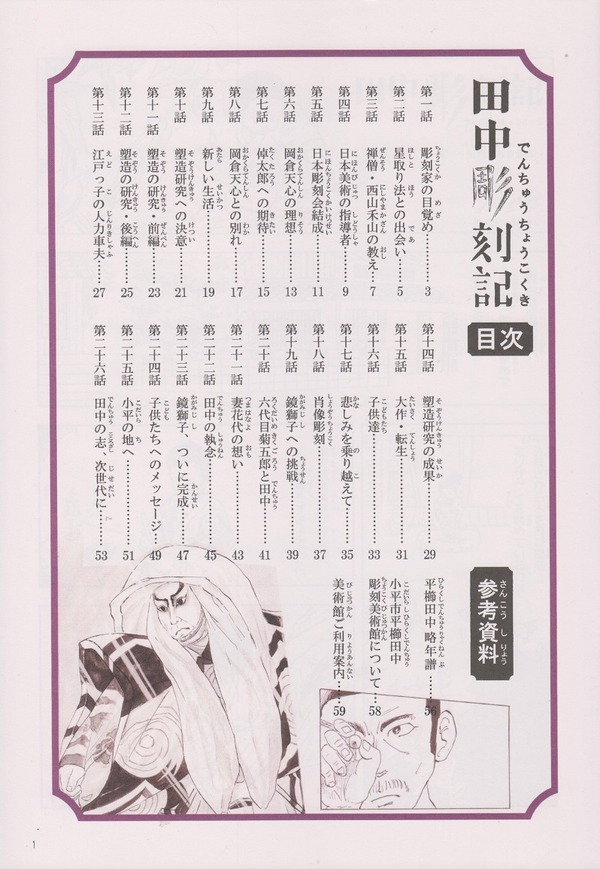 田中彫刻記
でんちゅうちょうこくき
目次
第一話 彫刻家の目覚め……3
第二話 星取り法との出会い……5
第三話 禅僧・西山禾山の教え……7
第四話 日本美術の指導者……9
第五話 日本彫刻会結成……11
第六話 岡倉天心の理想……13
第七話 倬太郎への期待……15
第八話 岡倉天心との別れ……17
第九話 新しい生活……19
第十話 塑造研究への決意……21
第十一話 塑造の研究・前編……23
第十二話 塑造の研究・後編……25
第十三話 江戸っ子の人力車夫……27
第十四話 塑造研究の成果……29
第十五話 大作・転生……31
第十六話 子供達……33
第十七話 悲しみを乗り越えて……35
第十八話 肖像彫刻……37
第十九話 鏡獅子への挑戦……39
第二十話 六代目菊五郎と田中……41
第二十一話 妻花代の想い……43
第二十二話 田中の執念……45
第二十三話 鏡獅子、ついに完成……47
第二十四話 子供たちへのメッセージ……49
第二十五話 小平の地へ……51
第二十六話 田中の志、次世代に……53
参考資料
さんこうしりょう
平櫛田中略年譜……56
小平市平櫛田中
彫刻美術館について……58
美術館ご利用案内……59
1